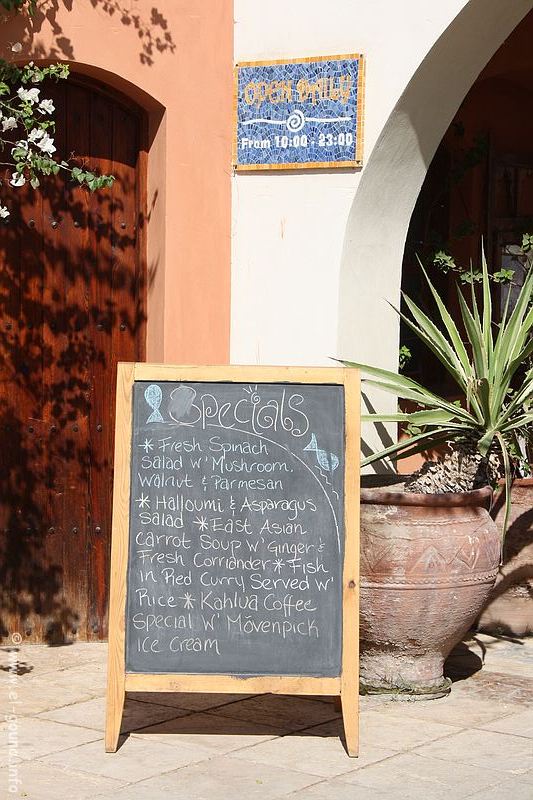 OPEN DAILY
From 10:00 - 23:00
Specials
* Fresh Spinach
Salad w' Mushroom,
Walnut & Parmesan
* Halloumi & Asparagus
Salad * East Asian
Carrot Soup w' Ginger &
Fresh Corriander * Fish
in Red Curry Served w'
Rice * Kahlua Coffee
Special w' Mövenpick
Ice Cream
© www.el-gouna.info